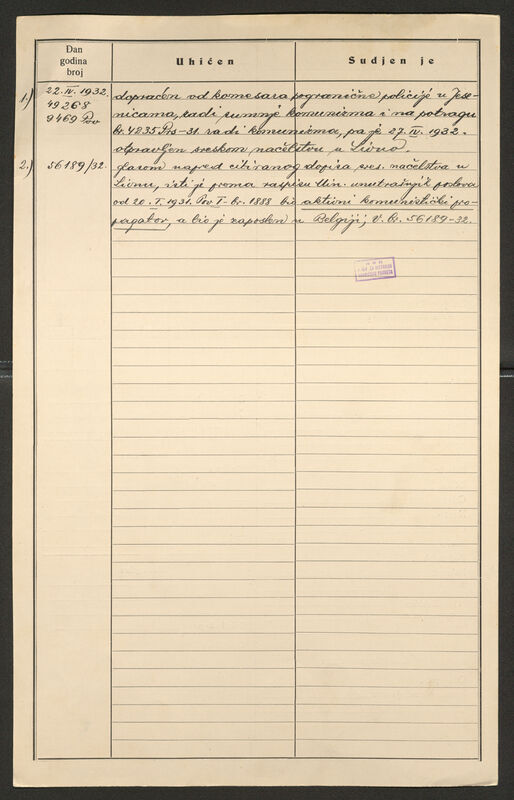 Dan
godina
broj
Uhićen
Sudjen je
1.) 22. IV. 1932. dopraćen od komesara pogranične policije u Jese-
49268 nicama, radi sumnje komunizma i na potragu
9469 Pov br. 4235 Prs-31 radi komunizma, pa je 27. IV. 1932.
otpravljen sreskom načelstvu u Livno.
2.) 56189/32. Glasom napred citiranog dopisa sres. načelstva u
Livnu, isti je prema raspisu Min. unutrašnjih poslova
od 20. I. 1931. Pov I-br. 1888 bio aktivni komunistički pro-
pagator, a bio je zaposlen u Belgiji, V. br. 56189-32.